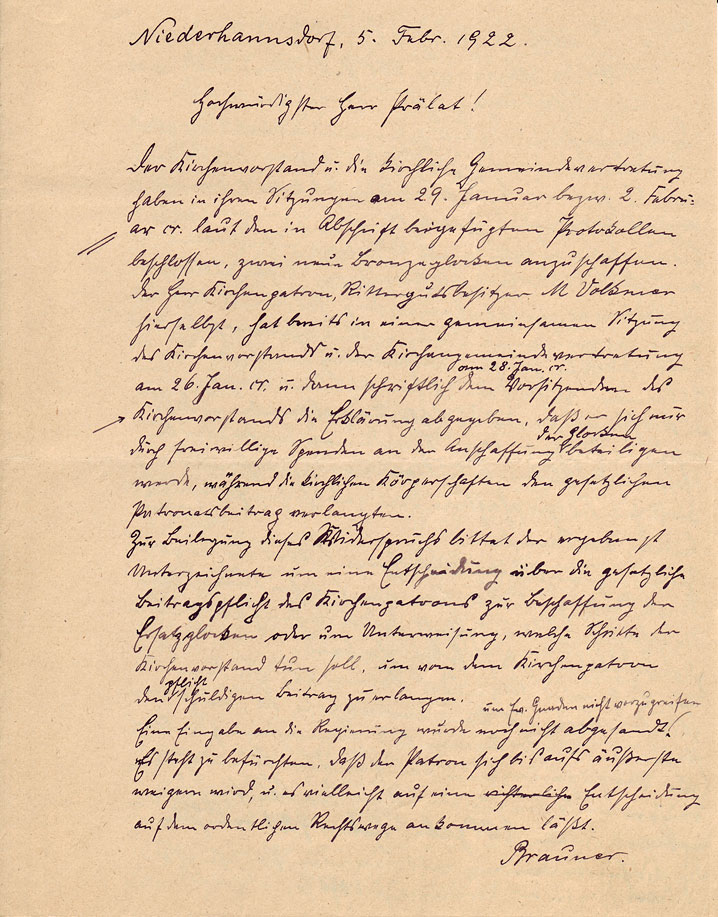 Niederhannsdorf, 5. Febr. 1922.
Hochwürdigster Herr Prälat!
Der Kirchenvorstand u. die kirchliche Gemeindevertretung
haben in ihren Sitzungen am 29. Januar bezw. 2. Febru-
ar cr. laut den in Abschrift beigefügten Protokollen
beschlossen, zwei neue Bronzeglocken anzuschaffen.
Der Herr Kirchenpatron, Rittergutsbesitzer M Volkmer
hierselbst, hat bereits in einer gemeinsamen Sitzung
des Kirchenvorstands u. der Kirchengemeindevertretung
vom 28. Jan. cr.
am 26. Jan. cr. u. dann schriftlich dem Vorsitzenden des
Kirchenvorstands die Erklärung abgegeben, daß er sich nur
der Glocken
durch freiwillige Spenden an den Anschaffung beteiligen
werde, während die kirchlichen Körperschaften den gesetzlichen
Patronatsbeitrag verlangten.
Zur Beilegung dieses Widerspruchs bittet der ergebenst
Unterzeichnete um eine Entscheidung über die gesetzliche
Beitragspflicht des Kirchenpatrons zur Beschaffung der
Ersatzglocken oder um Unterweisung, welche Schritte der
Kirchenvorstand tun soll, um von dem Kirchenpatron
pflicht
den schuldigen Beitrag zu erlangen.
um Ew. Gnaden nicht vorzugreifen
Eine Eingabe an die Regierung wurde noch nicht abgesandt,
Es steht zu befürchten, daß der Patron sich bis aufs äußerste
weigern wird, u. es vielleicht auf eine richterliche Entscheidung
auf dem ordentlichen Rechtswege ankommen läßt.
Brauner.